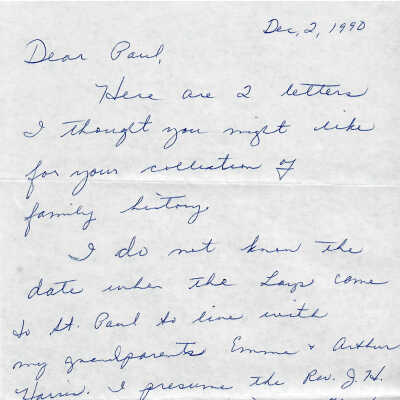 Dec, 2, 1990
Dear Paul,
Here are 2 letters
I thought you might like
for your collection of
family history.
I do not know the
date when the Lays came
to St. Paul to live with
my grandparents Emma & Arthur
Harris. I presume the Rev. J. H.